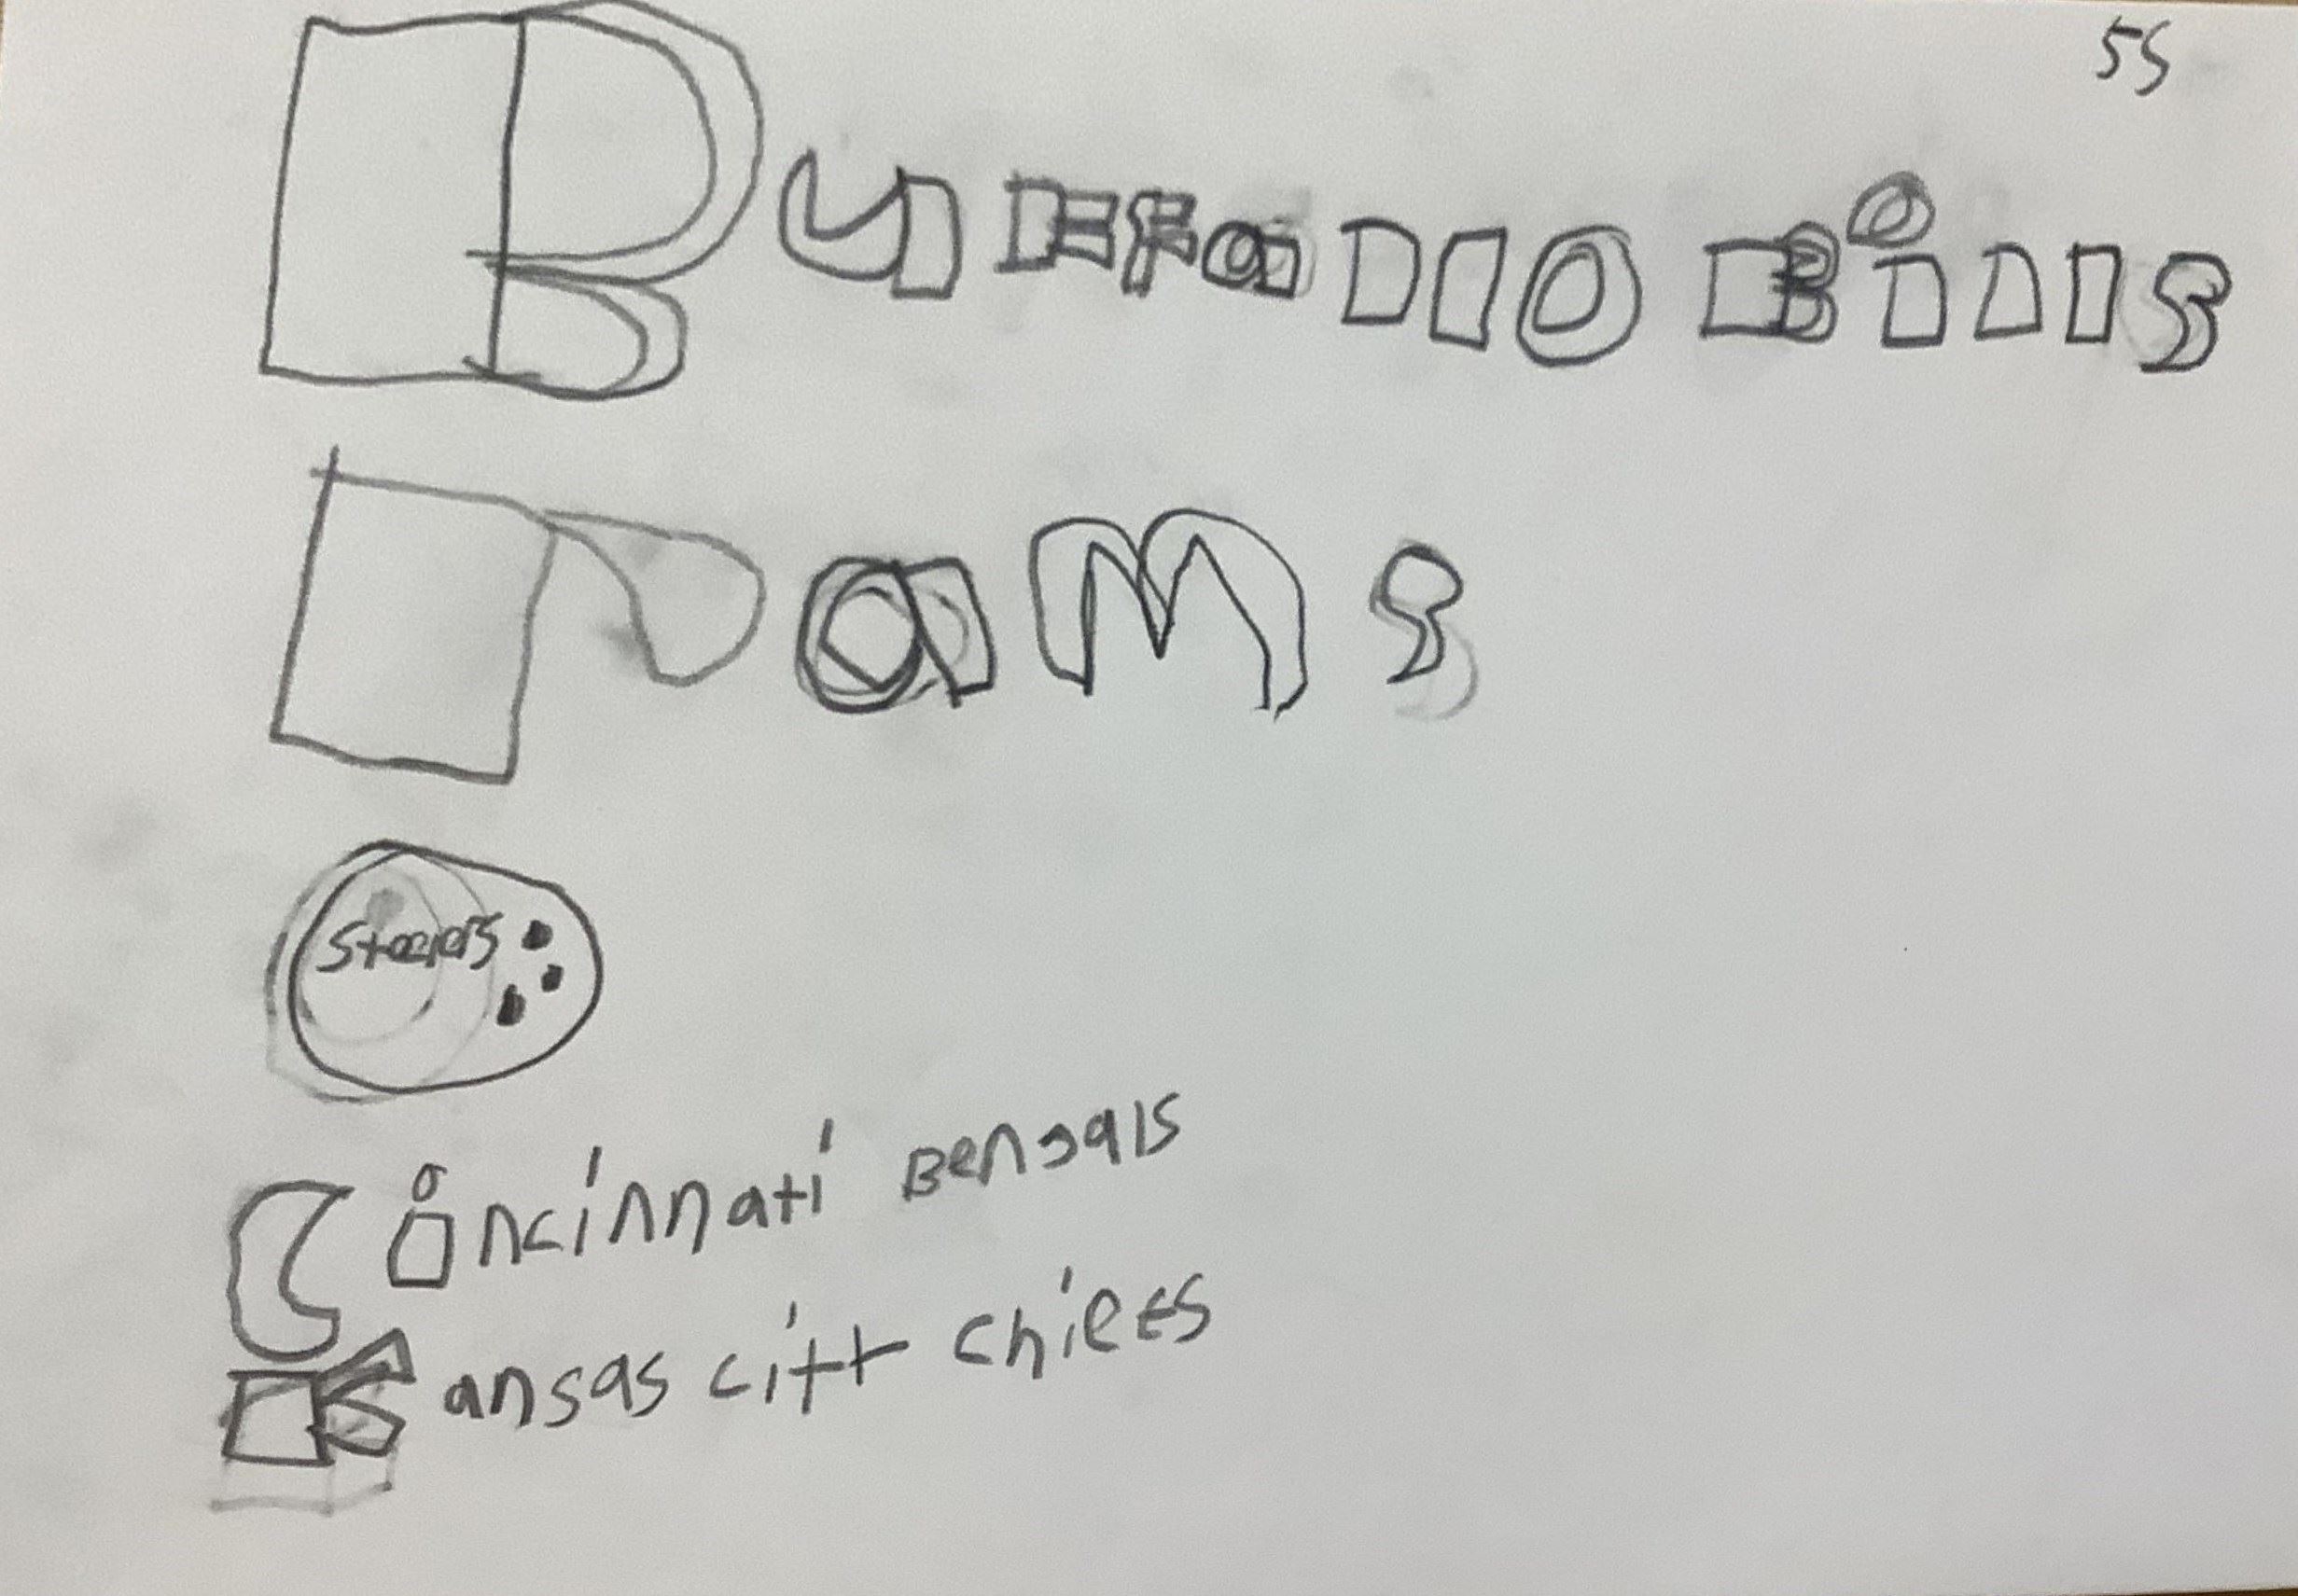 55
Buffallo Bills
rams
Steelers
Cincinnati Bengals
Kansas citt chiefs